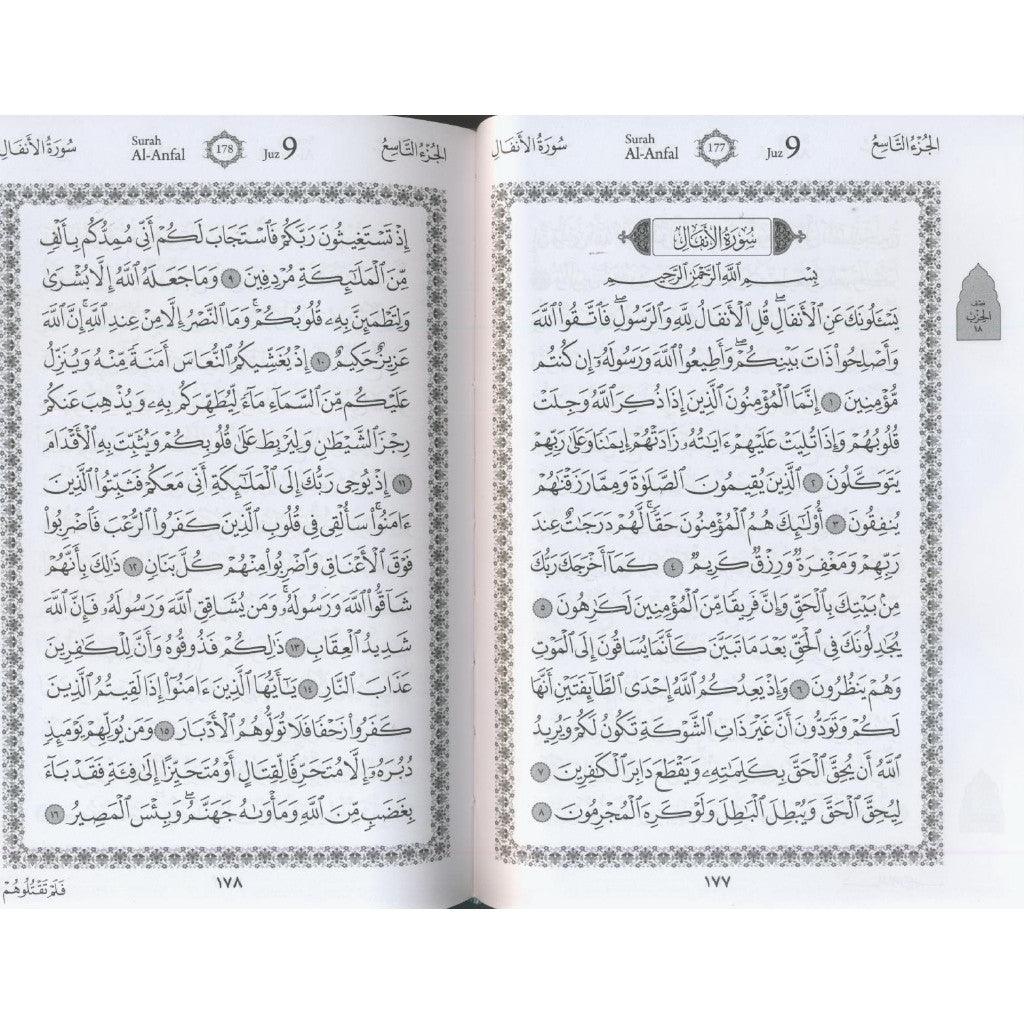 الجُزْءُ التَّاسِعُ
Juz 9
177
Surah
Al-Anfal
سُورَةُ الأَنفَالِ
سُورَةُ الأَنفَالِ
بِسْمِ ٱللَّهِ ٱلرَّحْمَٰنِ ٱلرَّحِيمِ
يَسْـَٔلُونَكَ عَنِ ٱلْأَنفَالِ ۖ قُلِ ٱلْأَنفَالُ لِلَّهِ وَٱلرَّسُولِ ۖ فَٱتَّقُوا۟ ٱللَّهَ
وَأَصْلِحُوا۟ ذَاتَ بَيْنِكُمْ ۖ وَأَطِيعُوا۟ ٱللَّهَ وَرَسُولَهُۥٓ إِن كُنتُم
مُّؤْمِنِينَ ١ إِنَّمَا ٱلْمُؤْمِنُونَ ٱلَّذِينَ إِذَا ذُكِرَ ٱللَّهُ وَجِلَتْ
قُلُوبُهُمْ وَإِذَا تُلِيَتْ عَلَيْهِمْ ءَايَٰتُهُۥ زَادَتْهُمْ إِيمَٰنًا وَعَلَىٰ رَبِّهِمْ
يَتَوَكَّلُونَ ٢ ٱلَّذِينَ يُقِيمُونَ ٱلصَّلَوٰةَ وَمِمَّا رَزَقْنَٰهُمْ
يُنفِقُونَ ٣ أُو۟لَٰٓئِكَ هُمُ ٱلْمُؤْمِنُونَ حَقًّا ۚ لَّهُمْ دَرَجَٰتٌ عِندَ
رَبِّهِمْ وَمَغْفِرَةٌ وَرِزْقٌ كَرِيمٌ ٤ كَمَآ أَخْرَجَكَ رَبُّكَ
مِنۢ بَيْتِكَ بِٱلْحَقِّ وَإِنَّ فَرِيقًا مِّنَ ٱلْمُؤْمِنِينَ لَكَٰرِهُونَ ٥
يُجَٰدِلُونَكَ فِى ٱلْحَقِّ بَعْدَ مَا تَبَيَّنَ كَأَنَّمَا يُسَاقُونَ إِلَى ٱلْمَوْتِ
وَهُمْ يَنظُرُونَ ٦ وَإِذْ يَعِدُكُمُ ٱللَّهُ إِحْدَى ٱلطَّآئِفَتَيْنِ أَنَّهَا
لَكُمْ وَتَوَدُّونَ أَنَّ غَيْرَ ذَاتِ ٱلشَّوْكَةِ تَكُونُ لَكُمْ وَيُرِيدُ
ٱللَّهُ أَن يُحِقَّ ٱلْحَقَّ بِكَلِمَٰتِهِۦ وَيَقْطَعَ دَابِرَ ٱلْكَٰفِرِينَ ٧
لِيُحِقَّ ٱلْحَقَّ وَيُبْطِلَ ٱلْبَٰطِلَ وَلَوْ كَرِهَ ٱلْمُجْرِمُونَ ٨
١٧٧
نصف
الحزب
١٨
الجُزْءُ التَّاسِعُ
Juz 9
178
Surah
Al-Anfal
سُورَةُ الأَنفَالِ
إِذْ تَسْتَغِيثُونَ رَبَّكُمْ فَٱسْتَجَابَ لَكُمْ أَنِّى مُمِدُّكُم بِأَلْفٍ
مِّنَ ٱلْمَلَٰٓئِكَةِ مُرْدِفِينَ ٩ وَمَا جَعَلَهُ ٱللَّهُ إِلَّا بُشْرَىٰ
وَلِتَطْمَئِنَّ بِهِۦ قُلُوبُكُمْ ۚ وَمَا ٱلنَّصْرُ إِلَّا مِنْ عِندِ ٱللَّهِ ۚ إِنَّ ٱللَّهَ
عَزِيزٌ حَكِيمٌ ١٠ إِذْ يُغَشِّيكُمُ ٱلنُّعَاسَ أَمَنَةً مِّنْهُ وَيُنَزِّلُ
عَلَيْكُم مِّنَ ٱلسَّمَآءِ مَآءً لِّيُطَهِّرَكُم بِهِۦ وَيُذْهِبَ عَنكُمْ
رِجْزَ ٱلشَّيْطَٰنِ وَلِيَرْبِطَ عَلَىٰ قُلُوبِكُمْ وَيُثَبِّتَ بِهِ ٱلْأَقْدَامَ
١١ إِذْ يُوحِى رَبُّكَ إِلَى ٱلْمَلَٰٓئِكَةِ أَنِّى مَعَكُمْ فَثَبِّتُوا۟ ٱلَّذِينَ
ءَامَنُوا۟ ۚ سَأُلْقِى فِى قُلُوبِ ٱلَّذِينَ كَفَرُوا۟ ٱلرُّعْبَ فَٱضْرِبُوا۟
فَوْقَ ٱلْأَعْنَاقِ وَٱضْرِبُوا۟ مِنْهُمْ كُلَّ بَنَانٍ ١٢ ذَٰلِكَ بِأَنَّهُمْ
شَآقُّوا۟ ٱللَّهَ وَرَسُولَهُۥ ۚ وَمَن يُشَاقِقِ ٱللَّهَ وَرَسُولَهُۥ فَإِنَّ ٱللَّهَ
شَدِيدُ ٱلْعِقَابِ ١٣ ذَٰلِكُمْ فَذُوقُوهُ وَأَنَّ لِلْكَٰفِرِينَ
عَذَابَ ٱلنَّارِ ١٤ يَٰٓأَيُّهَا ٱلَّذِينَ ءَامَنُوٓا۟ إِذَا لَقِيتُمُ ٱلَّذِينَ
كَفَرُوا۟ زَحْفًا فَلَا تُوَلُّوهُمُ ٱلْأَدْبَارَ ١٥ وَمَن يُوَلِّهِمْ يَوْمَئِذٍ
دُبُرَهُۥٓ إِلَّا مُتَحَرِّفًا لِّقِتَالٍ أَوْ مُتَحَيِّزًا إِلَىٰ فِئَةٍ فَقَدْ بَآءَ
بِغَضَبٍ مِّنَ ٱللَّهِ وَمَأْوَىٰهُ جَهَنَّمُ ۖ وَبِئْسَ ٱلْمَصِيرُ ١٦
١٧٨
فَلَمْ تَقْتُلُوهُمْ